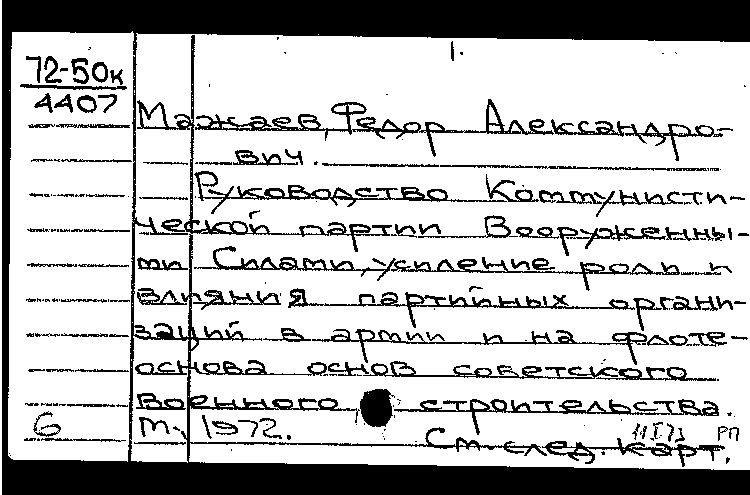 1.
72-50к
4407
Мажаев, Федор Александро-
вич.
Руководство Коммунисти-
ческой партии Вооруженны-
ми Силами, усиление роль и
влияния партийных органи-
заций в армии и на флоте-
основа основ советского
военного строительства.
6 М., 1972.
См. след. карт.
РП